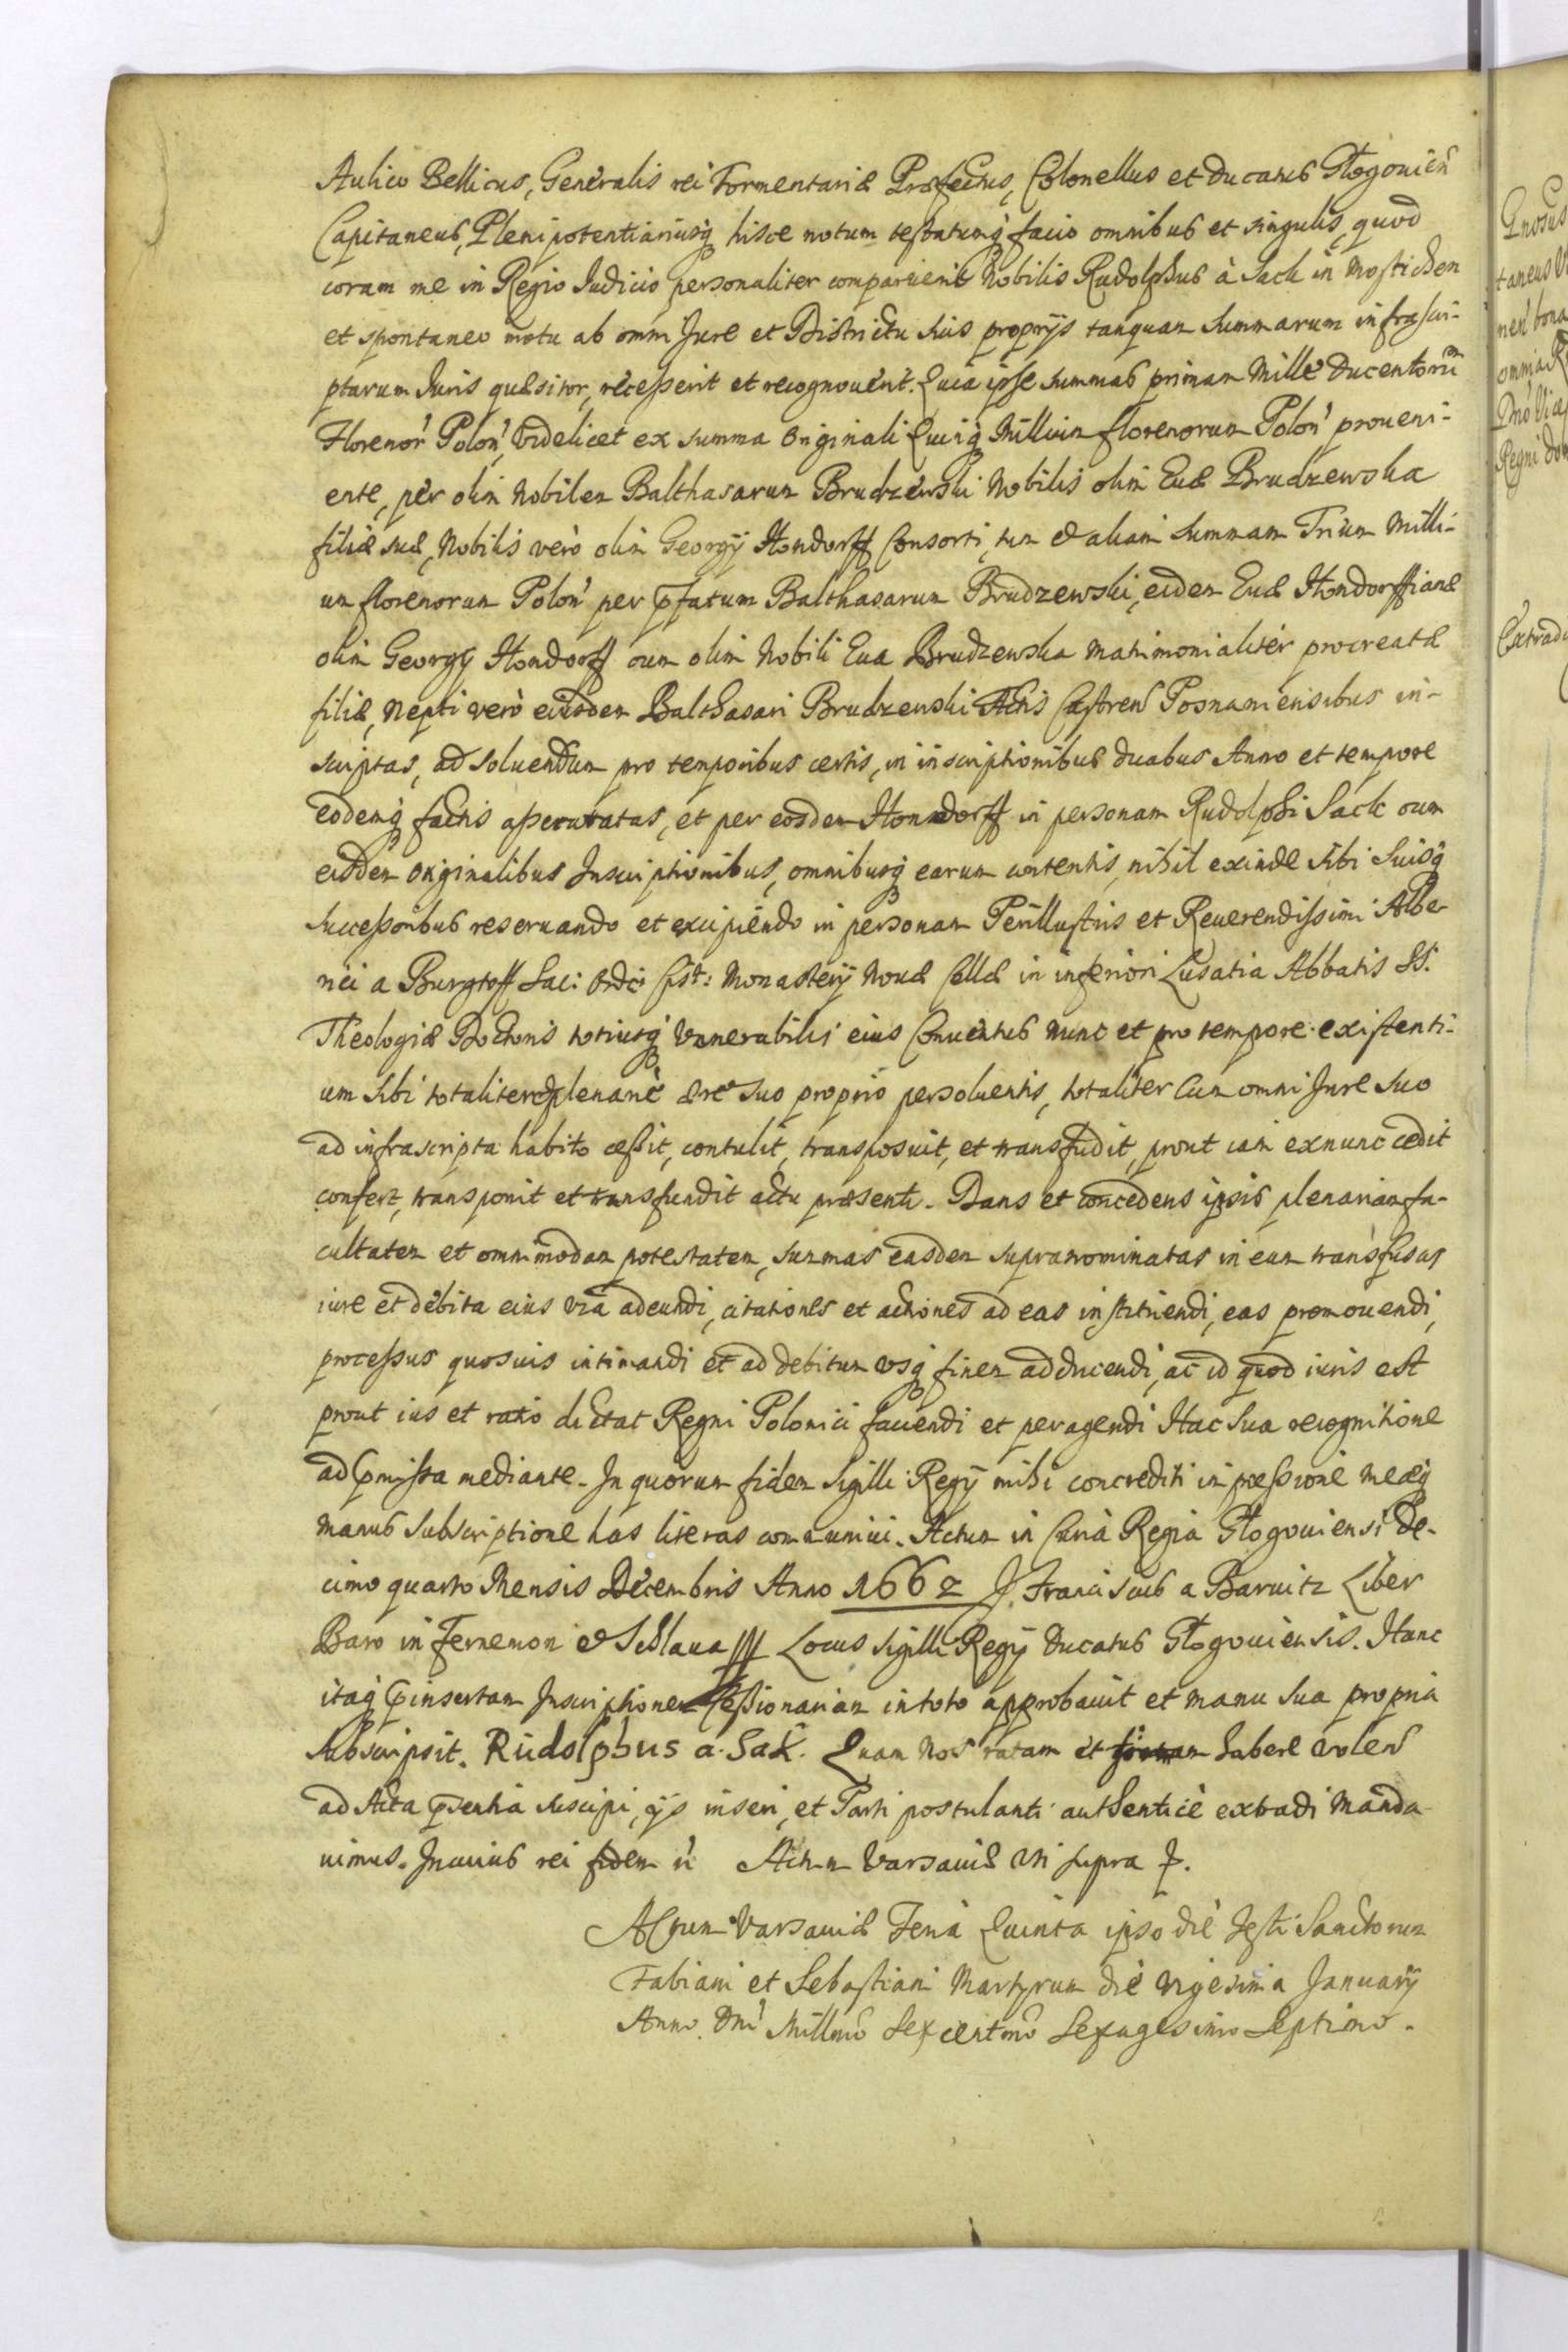 Aulico Bellicus, Generalis rei Tormentariæ Præfectus, Colonellus et Ducatus Glogovien̄
Capitaneus, Plenipotentiariusq̨ hisce notum testatumq̨ facio omnibus et singulis, quod
coram me in Regio Judicio personaliter comparuerit Nobilis Rudolphus à Sack in Mostichen
et spontaneo motu ab omni Jure et Districtu suis proprijs tanquam summarum infrascri-
ptarum Juris quæsitor, recesserit et recognouerit. Quia ipse summas primam Mille Ducentorū
Florenor' Polon', videlicet ex summa originali Quinq̨ Millium florenorum Polon' proueni-
ente, per olim Nobilem Balthasarum Brudzewski Nobilis olim Euæ Brudzewska
filiæ suæ, Nobilis verò olim Georgij Hondorff Consorti, tum et aliam summam Trium Milli-
um florenorum Polon' per p̄fatum Balthasarum Brudzewski, eidem Euæ Hondorffianæ
olim Georgij Hondorff cum olim Nobili Eua Brudzewska matrimonialiter procreatæ
filiæ, Nepti verò eiusdem Balthasari Brudzewski Actis Castren̄ Posnaniensibus in-
scriptas, ad soluendum pro temporibus certis, in inscriptionibus duabus Anno et tempore
eodemq̨ factis assecuratas, et per eosdem Hondorff in personam Rudolphi Sack cum
eisdem originalibus Inscriptionibus, omnibusq̨ earum contentis, nihil exinde sibi suisq̨
successoribus reseruando et excipiendo in personam Perillustris et Reuerendissimi Albe
rici a Burghoff Sac: Ordi: Cist: Monasterij Nouæ Cellæ in inferiori Lusatia Abbatis SS.
Theologiæ Doctoris totiusq̨ Venerabilis eius Conuentus nunc et pro tempore existenti-
um sibi totaliter et plenarie ære suo proprio persoluentis, totaliter cum omni Jure suo
ad infrascripta habito cessit, contulit, transposuit, et transfudit, prout iam exnunc cedit
confert, transponit et transfundit actu præsenti. Dans et concedens ipsis plenariam fa-
cultatem et omnimodam potestatem, summas easdem supranominatas in eum transfusas
iure et debita eius via adeundi, citationes et actiones ad eas instituendi, eas promouendi,
processus quosuis intimandi et ad debitum vsq̨ finem adducendi, ac id quod iuris est
prout ius et ratio dictat Regni Polonici faciendi et peragendi Hac sua recognitione
ad p̄missa mediante. In quorum fidem Sigilli Regij mihi concrediti impressione meæq̨
manus subscriptione has literas communiui. Actum in Curia Regia Glogouiensi De-
cimo quarto Mensis Decembris Anno 1662 J. Franciscus a Barwitz Liber
Baro in Fernemon et Schlaua Locus Sigilli Regij Ducatus Glogouiensis. Hanc
itaq̨ p̄insertam Inscriptionem Cessionariam in toto approbauit et manu sua propria
subscripsit. Rudolphus a. Sak. Quam Nos ratam et firmam habere volen̄
ad Acta p̄sentia suscipi, ijs inseri, et Parti postulanti authentice extradi manda
uimus. In cuius rei fidem Actum Varsauiæ vti supra
Actum Varsauiæ Feria Quinta ipso die Festi Sanctorum
Fabiani et Sebastiani Martyrum die vigesima Januarij
Anno Dni' Millmo Sexcentmo Sexagesimo Septimo.
Gnosus
taneus
omnia
Regni
Extrad